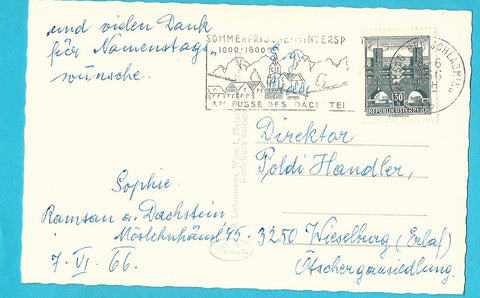 und vielen Dank
für Namenstags-
wünsche.
Sophie
Ramsau a. Dachstein
45
7. VI. 66.
SOMMERFRISCHE-WINTERSP
1000-1800
AM FUSSE DES DACHSTEI
SCHLADMING
50
REPUBLIK ÖSTERREICH
Direktor
Poldi Handler,
3250 Wieselburg (Erlaf)
Ötschersiedlung.